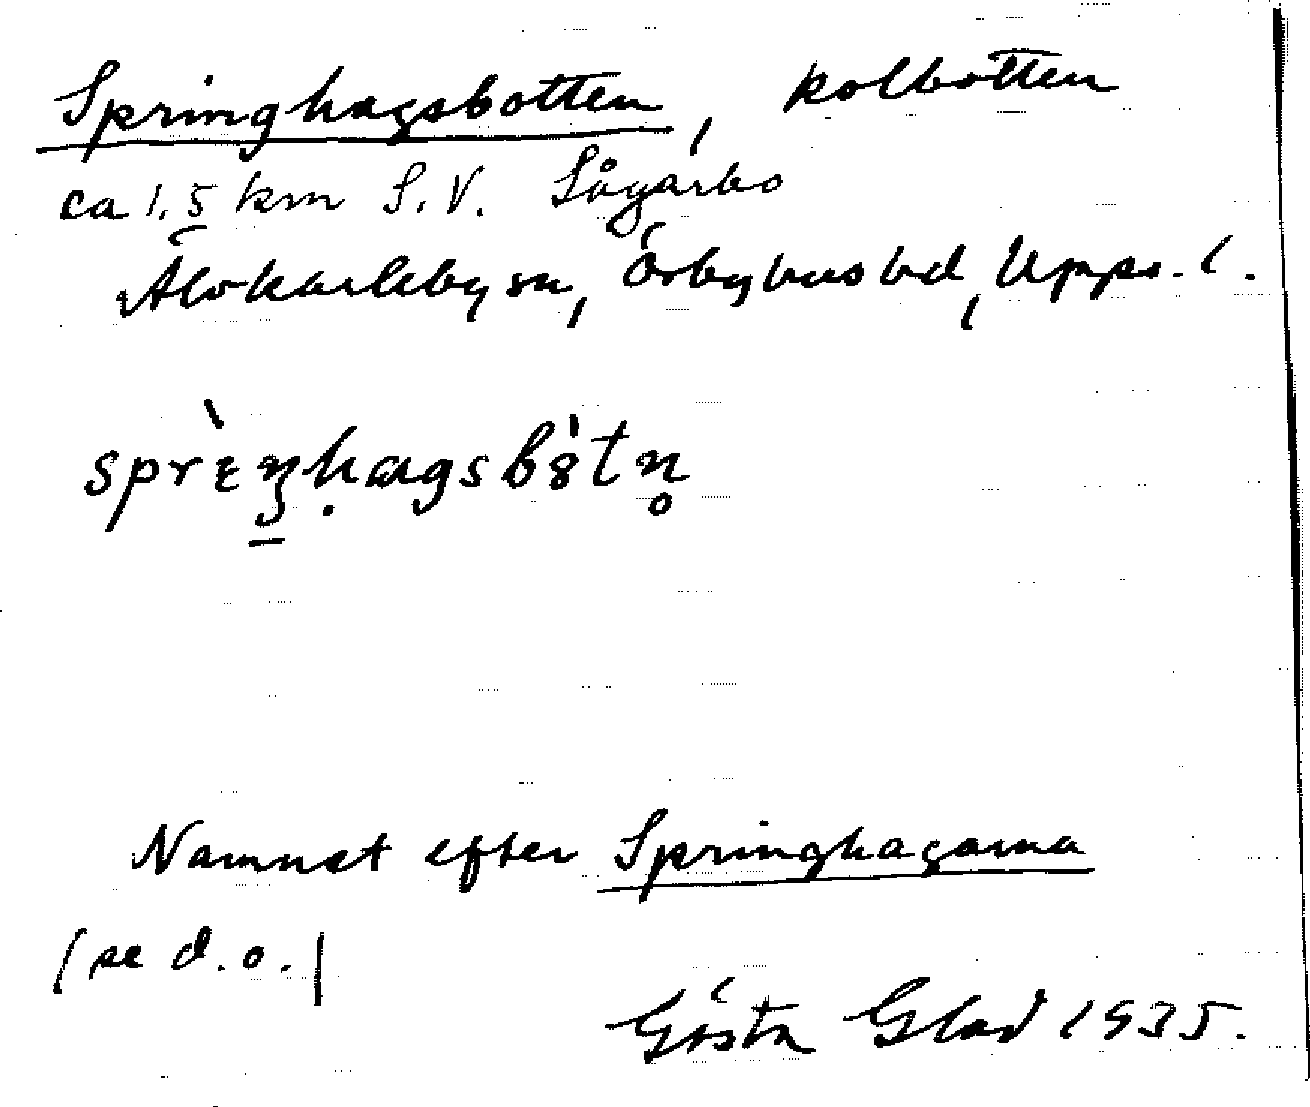 Springhagsbotten, kolbotten
ca 1,5 km S.V. Sågarbo
Älvkarleby sn, Örbyhus hd, Upps. l.
sprɛ̀ŋ̱ḥagsbòtn̥
Namnet efter Springhagarna
(se d.o.)
Gösta Glad 1935.